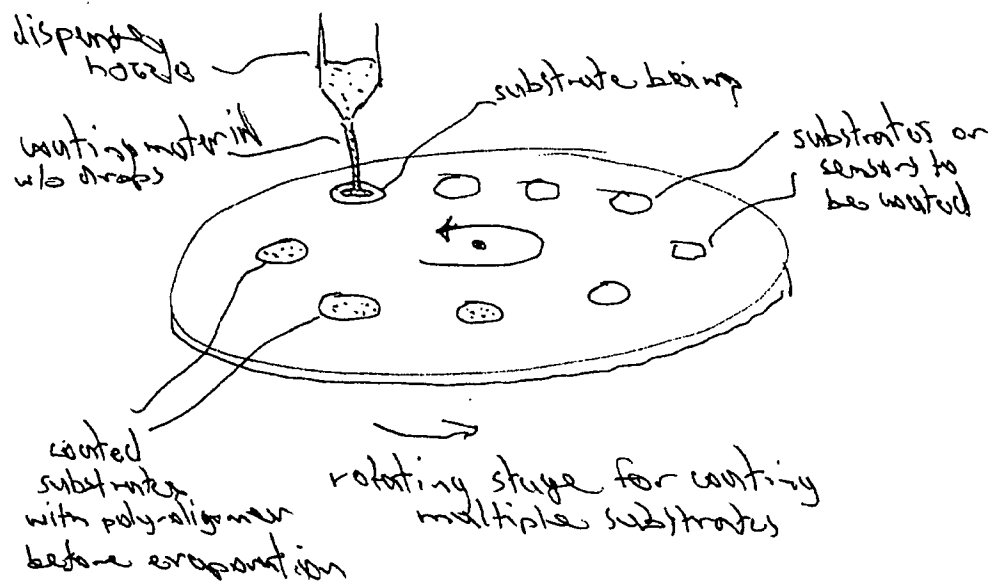 dispensing
nozzle
coating material
w/o drops
substrate being
substrates or
sensors to
be coated
coated
substrates
with poly-oligomer
before evaporation
rotating stage for coating
multiple substrates